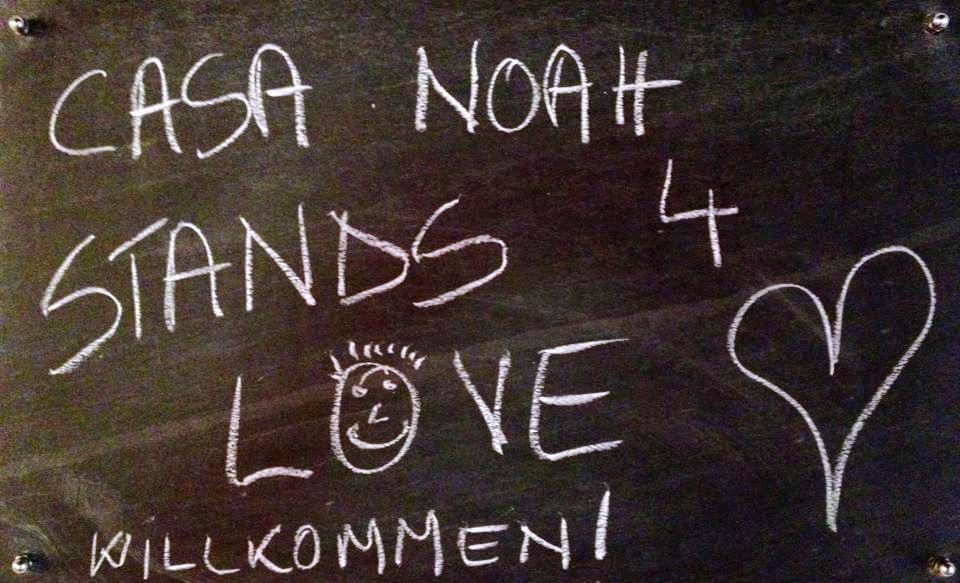 CASA NOAH
STANDS 4
LOVE
WILLKOMMEN!